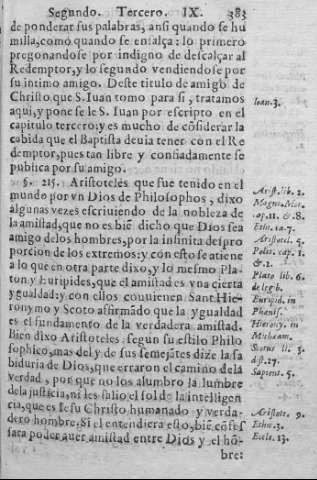 Segundo. Tercero. IX. 383
de ponderar sus palabras, ansi quando se hu
milla, como quando se ensalça: lo primero
pregonandose por indigno de descalçar al
Redemptor, y lo segundo vendiendose por
su intimo amigo. Deste titulo de amigo de
Christo que S. Iuan tomo para si, tratamos
aqui, y pone se le S. Iuan por escripto en el
capitulo tercero: y es mucho de cõsiderar la
cabida que el Baptista deuia tener con el Re
demptor, pues tan libre y confiadamente se
publica por su amigo.
§. 215. Aristoteles que fue tenido en el
mundo por vn Dios de Philosophos, dixo
algunas vezes escriuiendo de la nobleza de
la amistad, que no es biẽ dicho que Dios sea
amigo delos hombres, por la infinita despro
porcion de los extremos: y con esto se atiene
a lo que en otra parte dixo, y lo mesmo Pla-
ton y Euripides, que el amistad es vna cierta
ygualdad: y con ellos conuienen Sant Hie-
ronymo y Scoto affirmãdo que la ygualdad
es el fundamento de la verdadera amistad.
Bien dixo Aristoteles segun su estilo Philo
sophico, mas del y de sus semejãtes dize la sa
biduria de Dios, que erraron el camino dela
verdad, por que no los alumbro la lumbre
dela justicia, ni les salio el sol de la intelligen
cia, que es Iesu Christo humanado y verda-
dero hombre. Si el entendiera esto, biẽ cõfes
sara poder auer amistad entre Dios y el hõ-
bre:
Ioan. 3.
Arist. lib. 2.
Magn. Mor.
cap. 11. & 8.
Ethi. c. 7.
Aristotel. 5.
Polit. cap. 1.
& 2.
Plato lib. 6.
de legib.
Euripid. in
Phœnis.
Hierony. in
Micheam.
Scotus li. 3.
dist. 27.
Sapient. 5.
Aristote. 9.
Ethi. 3.
Eccle. 13.